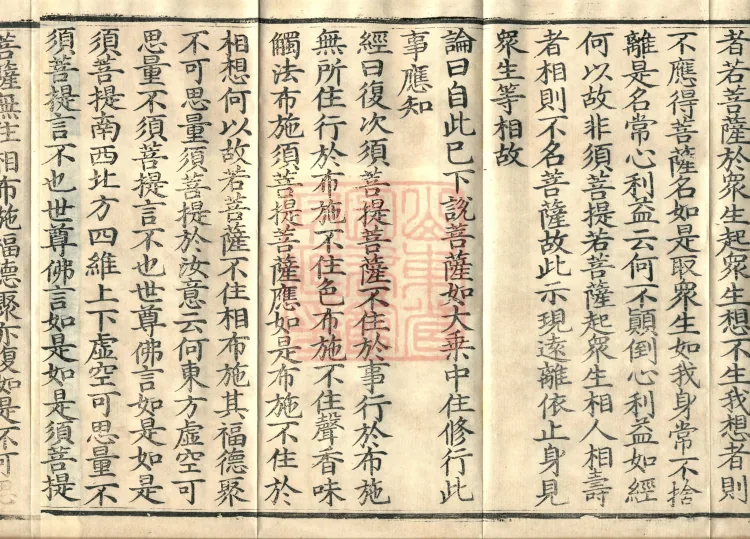 者若菩薩於眾生起眾生想不生我想者則
不應得菩薩名如是取眾生如我身常不捨
離是名常心利益云何不顛倒心利益如經
何以故非須菩提若菩薩起眾生相人相壽
者相則不名菩薩故此示現遠離依止身見
眾生等相故
論曰自此已下說菩薩如大乘中住修行此
事應知
經曰復次須菩提菩薩不住於事行於布施
無所住行於布施不住色布施不住聲香味
觸法布施須菩提菩薩應如是布施不住於
相想何以故若菩薩不住相布施其福德聚
不可思量須菩提於汝意云何東方虛空可
思量不須菩提言不也世尊佛言如是如是
須菩提南西北方四維上下虛空可思量不
須菩提言不也世尊佛言如是如是須菩提
菩薩無住相布施福德聚亦復如是不可思